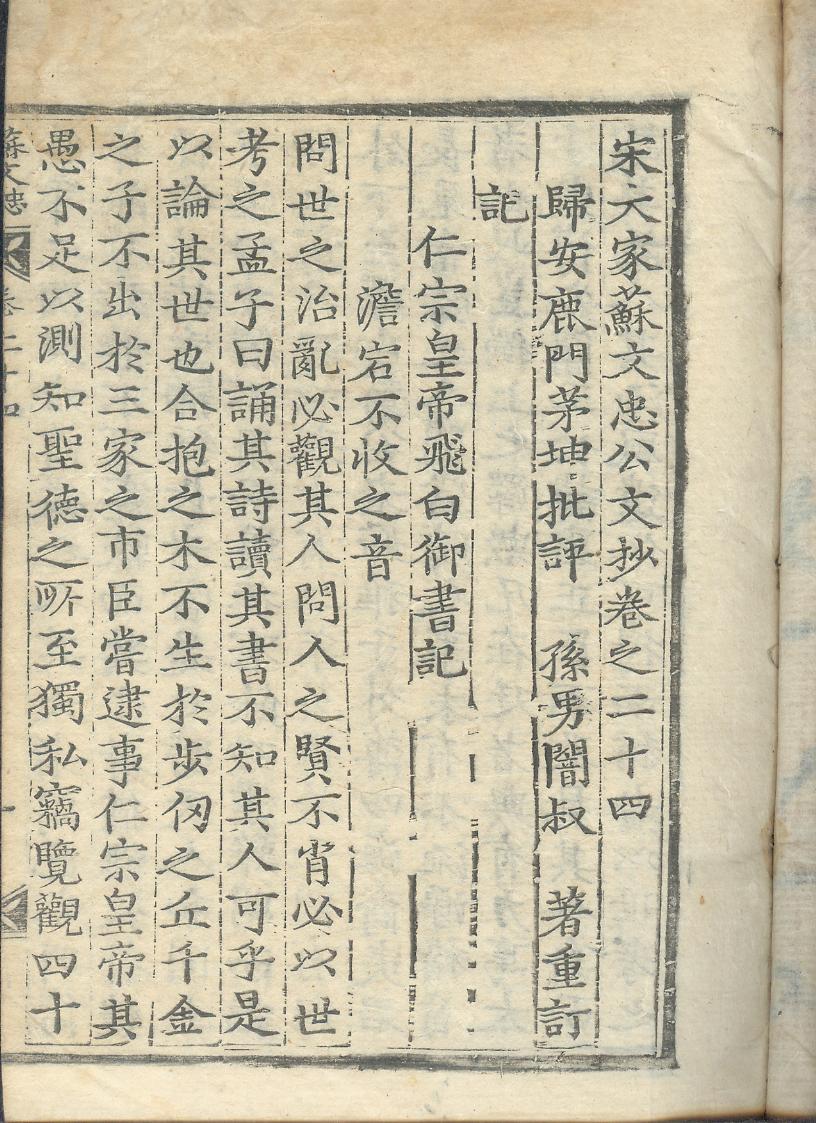 宋大家蘇文忠公文抄卷之二十四
歸安鹿門茅坤批評 孫男闇叔 著重訂
記
仁宗皇帝飛白御書記
澹宕不收之音
問世之治亂必觀其人問人之賢不肖必以世
考之孟子曰誦其詩讀其書不知其人可乎是
以論其世也合抱之木不生於步仞之丘千金
之子不出於三家之市臣嘗逮事仁宗皇帝其
愚不足以測知聖德之所至獨私竊覽觀四十
蘇文忠 卷二十四 一